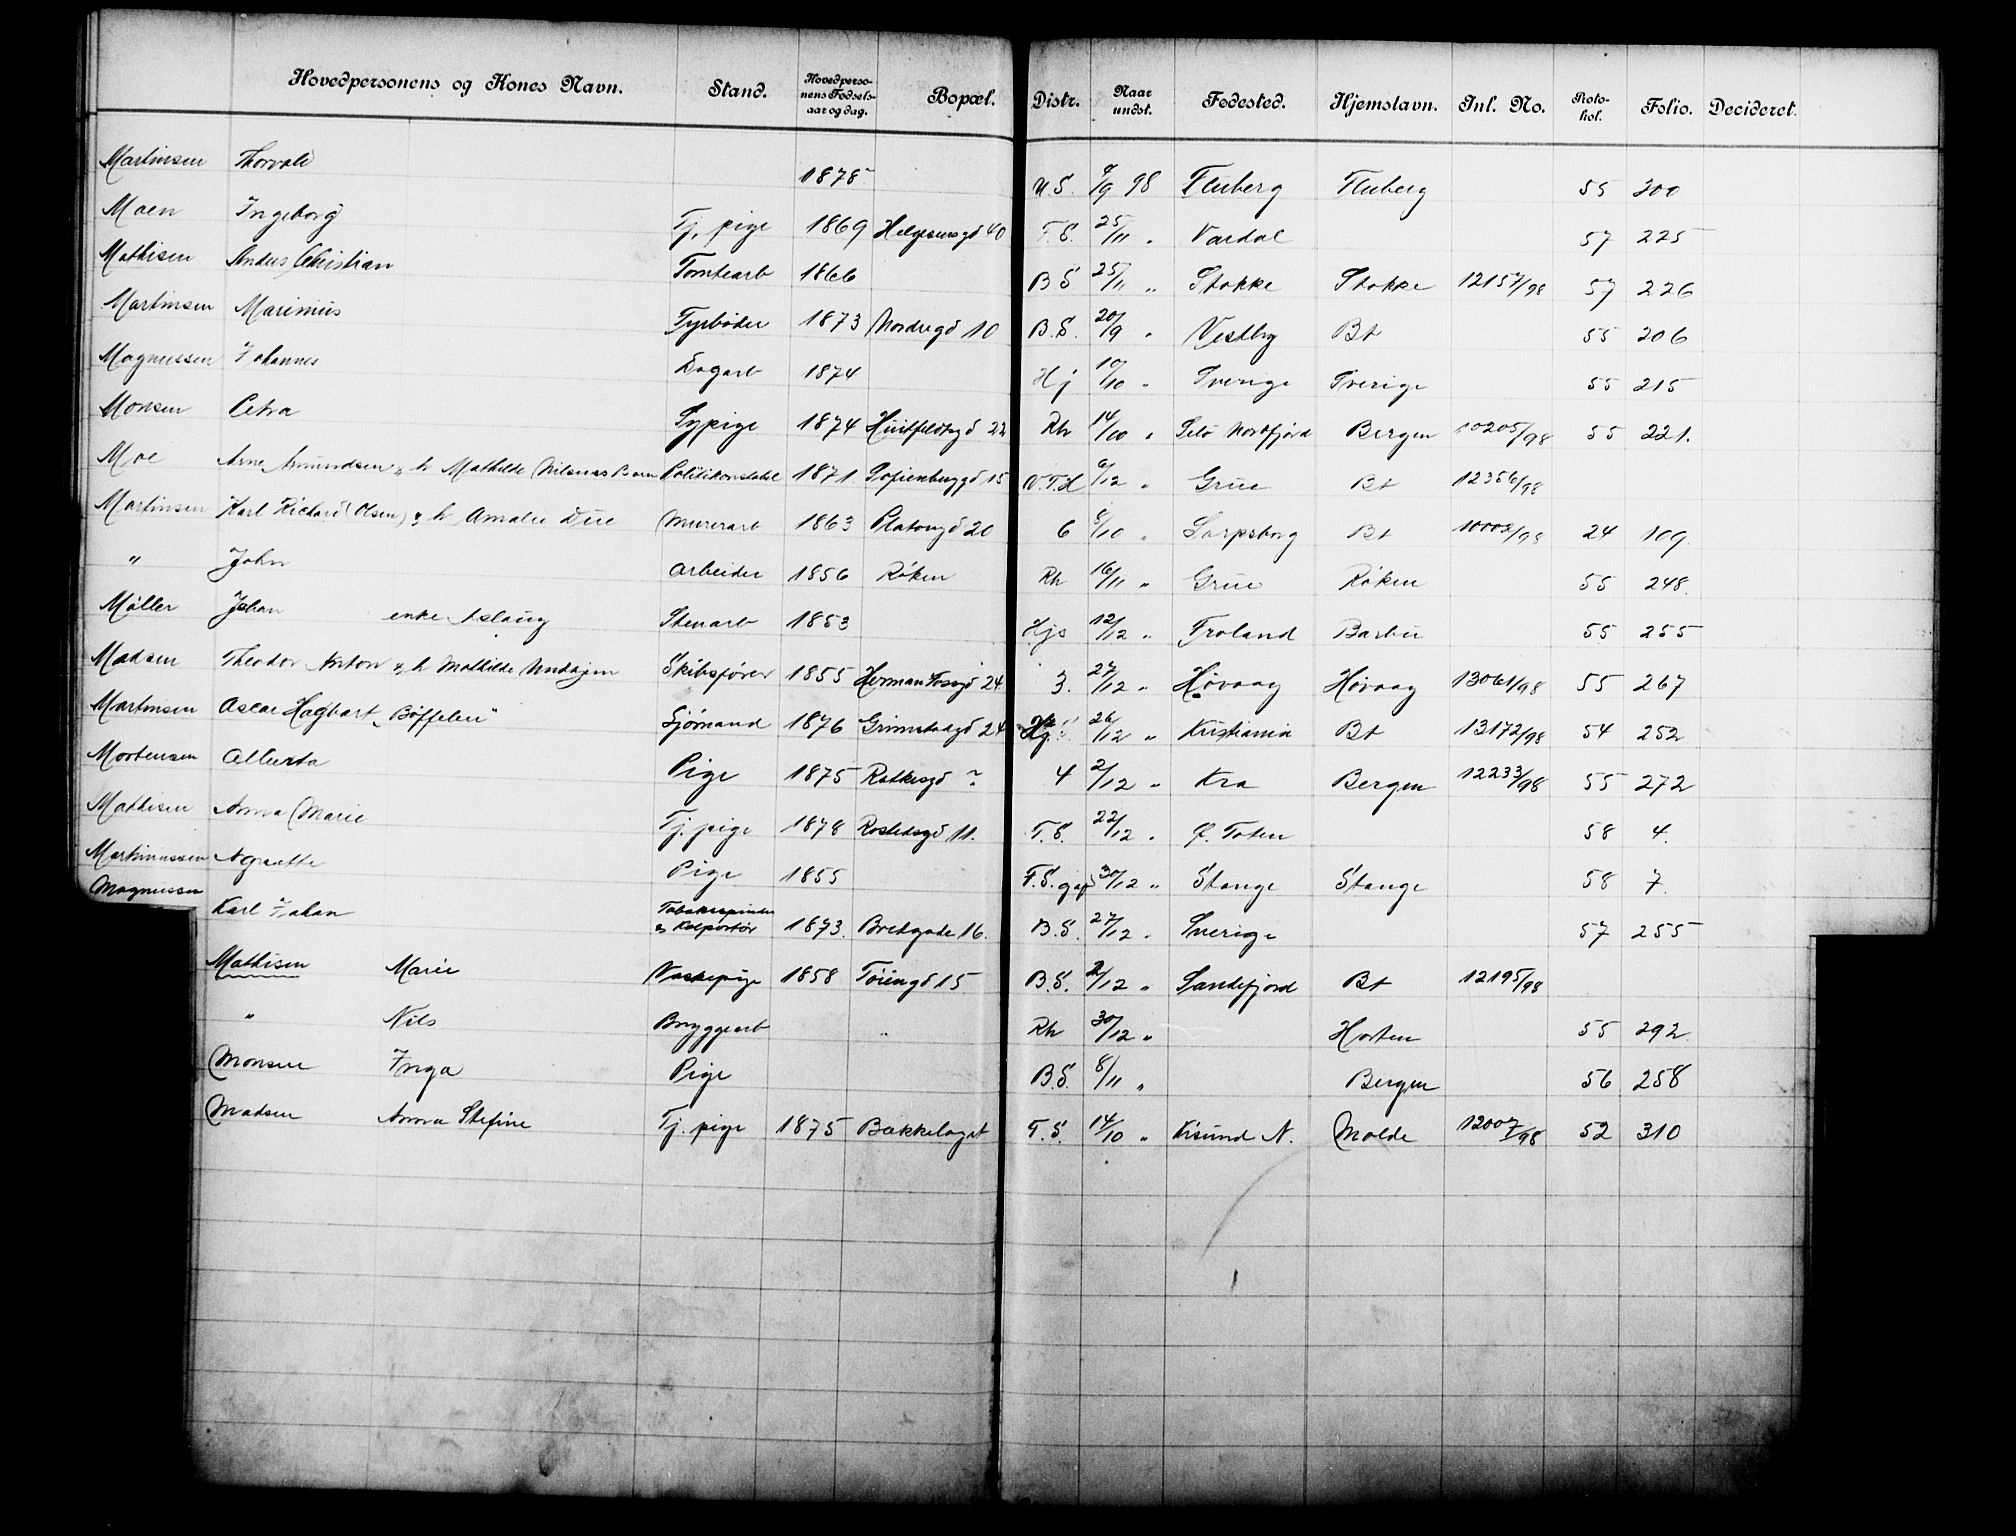 Hovedpersonens og Kones Navn. Stand. Hovedpersonens Fødselsaar og dag. Bopæl. Distr. Naar undst. Fødested. Hjemstavn. Inl. No. Protokol. Folio. Decideret.
Martinsen Thorvald 1878 9/9 98 Fluberg Fluberg 55 200
Moen Ingeborg Tj. pige 1869 Helgesensgd 40 F.S. 25/11 " Vardal 57 225
Mathisen Anders Christian Tomtearb 1866 B.S 25/11 " Stokke Stokke 12157/98 57 226
Martinsen Marinius Fyrbøder 1873 Nordregd 10 B.S. 20/9 " Vestby Bt 55 206
Magnussen Johannes Dagarb 1874 Hj 10/10 " Sverige Sverige 55 215
Monsen Petra Sypige 1874 Huitfeldtsgd 22 Rh 14/10 " Selø Nordfjord Bergen 10205/98 55 221.
Moe Arne Amundsen & h Mathilde Politikonstabel 1871 Sofienberggd 15 V.F.H 6/12 " Grue Bt 12356/98
Martinsen Karl Richard (Olsen) & h Amalie Due Murerarb 1863 Platousgd 20 6 8/10 " Sarpsborg Bt 10002/98 24 109.
" John Arbeider 1856 Røken Rh 16/11 " Grue Røken 55 248.
Møller Johan enke Aslaug Stenarb 1853 Hjs 12/12 " Froland Barbu 55 255
Madsen Theodor Anton & h Mathilde Skibsfører 1855 Herman Fossgd 24 3. 27/12 " Høvaag Høvaag 13061/98 55 267
Martinsen Oscar Hagbart "Bøffelen" Sjømand 1876 Grimstadgd 24 26/12 " Kristiania Bt 13172/98 54 252
Mortensen Alberta Pige 1875 Ratkesgd ? 4 2/12 " Kra Bergen 12233/98 55 272
Mathisen Anna Marie Tj. pige 1878 Rostedsgd 11. F.S. 22/12 " Ø. Toten 58 4.
Martinussen Agnette Pige 1855 F.S. 30/12 " Stange Stange 58 7.
Magnussen Karl Johan Tobakspinder & Kolportør 1873. Bredgade 16. B.S. 27/12 " Sverige 57 255
Mathisen Marie Vaskepige 1858 Tøiengd 15 B.S. 2/12 " Sandefjord Bt 12195/98
" Nils Bryggearb " Rh 30/12 " Horten 55 292.
Monsen Inga Pige B.S. 8/11 " Bergen 56 258
Madsen Anna Stefine Tj. pige 1875 Bækkelaget F.S. 14/10 " Krsund N. Molde 12007/98 52 310